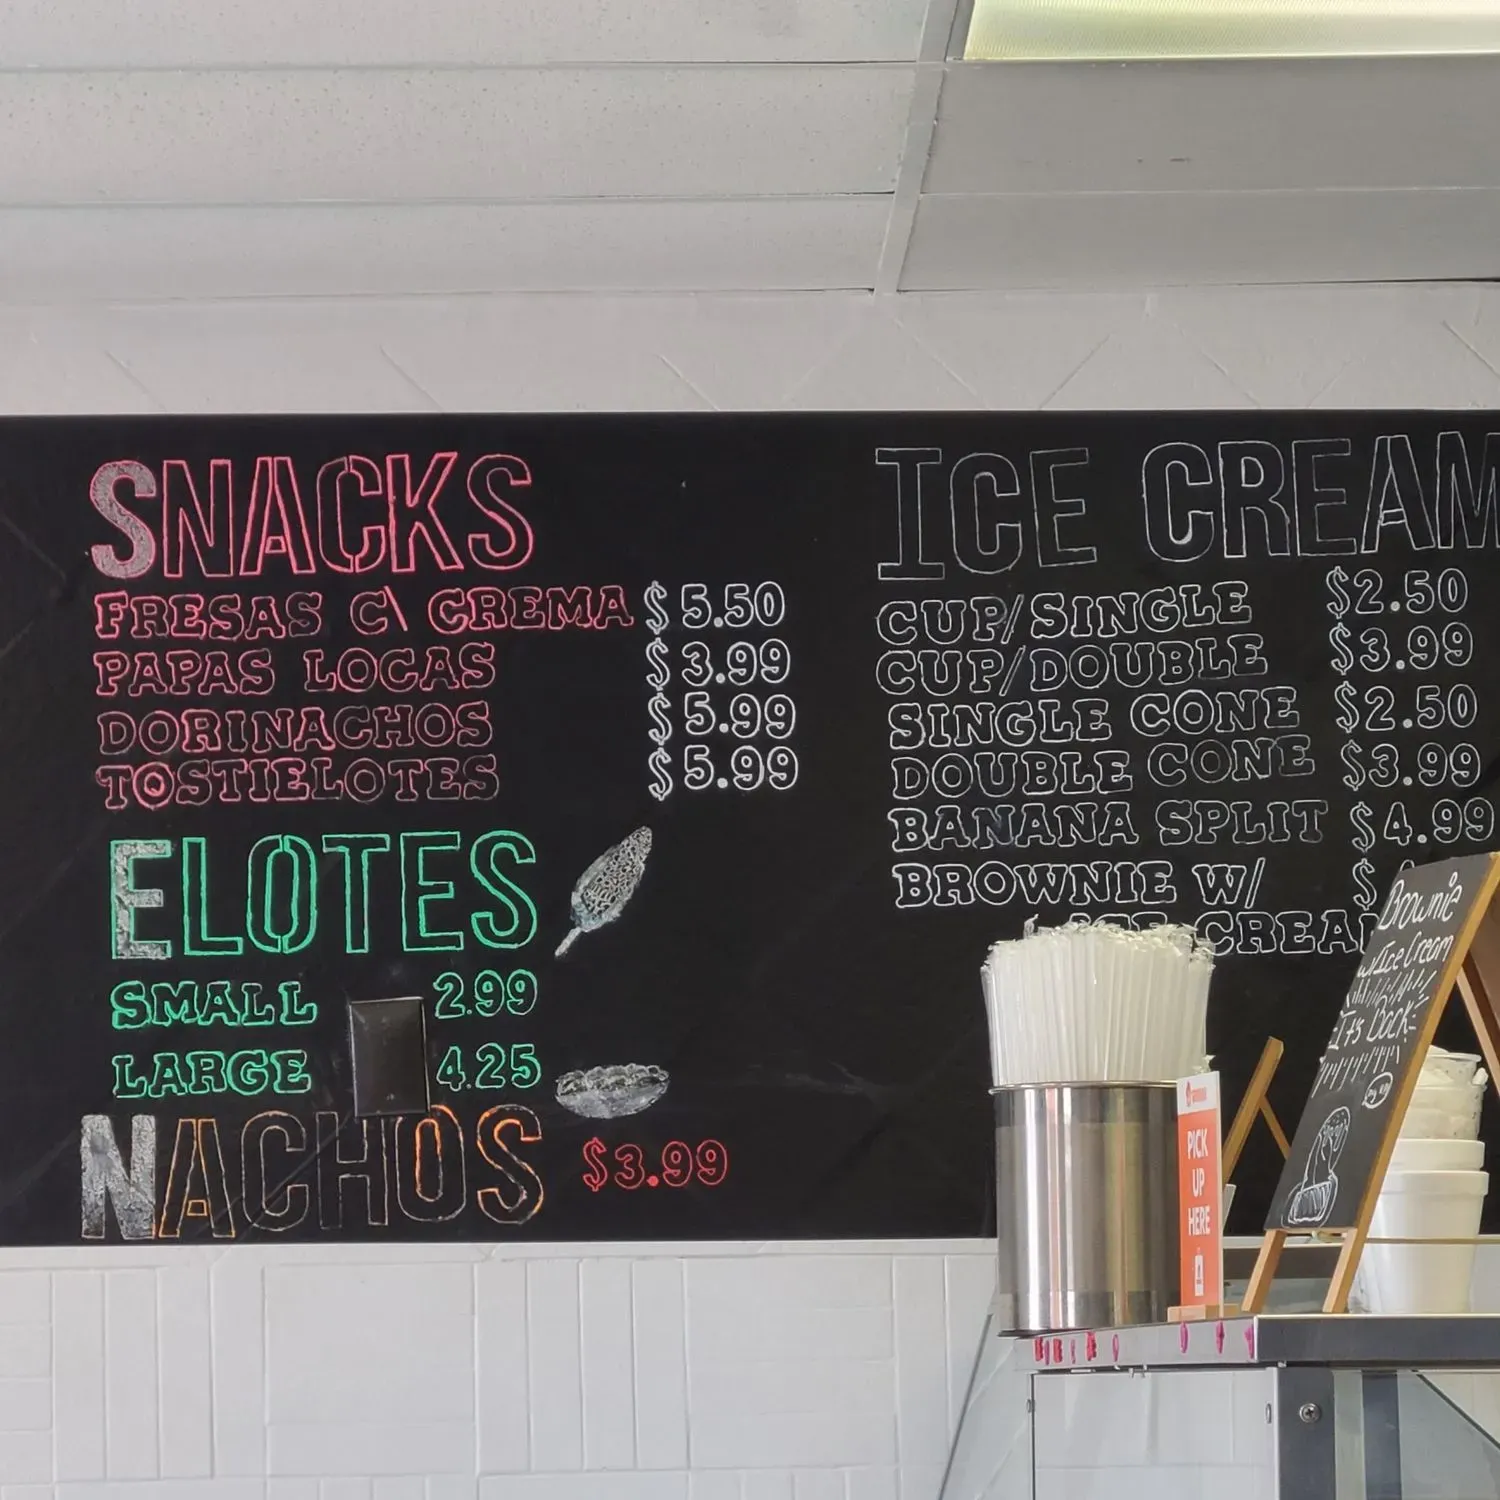 SNACKS
FRESAS C\ CREMA $5.50
PAPAS LOCAS $3.99
DORINACHOS $5.99
TOSTIELOTES $5.99
ELOTES
SMALL 2.99
LARGE 4.25
NACHOS $3.99
ICE CREAM
CUP/SINGLE $2.50
CUP/DOUBLE $3.99
SINGLE CONE $2.50
DOUBLE CONE $3.99
BANANA SPLIT $4.99
BROWNIE W/ $
ICE CREAM
Brownie
w/Ice Cream
It's Back
PICK
UP
HERE